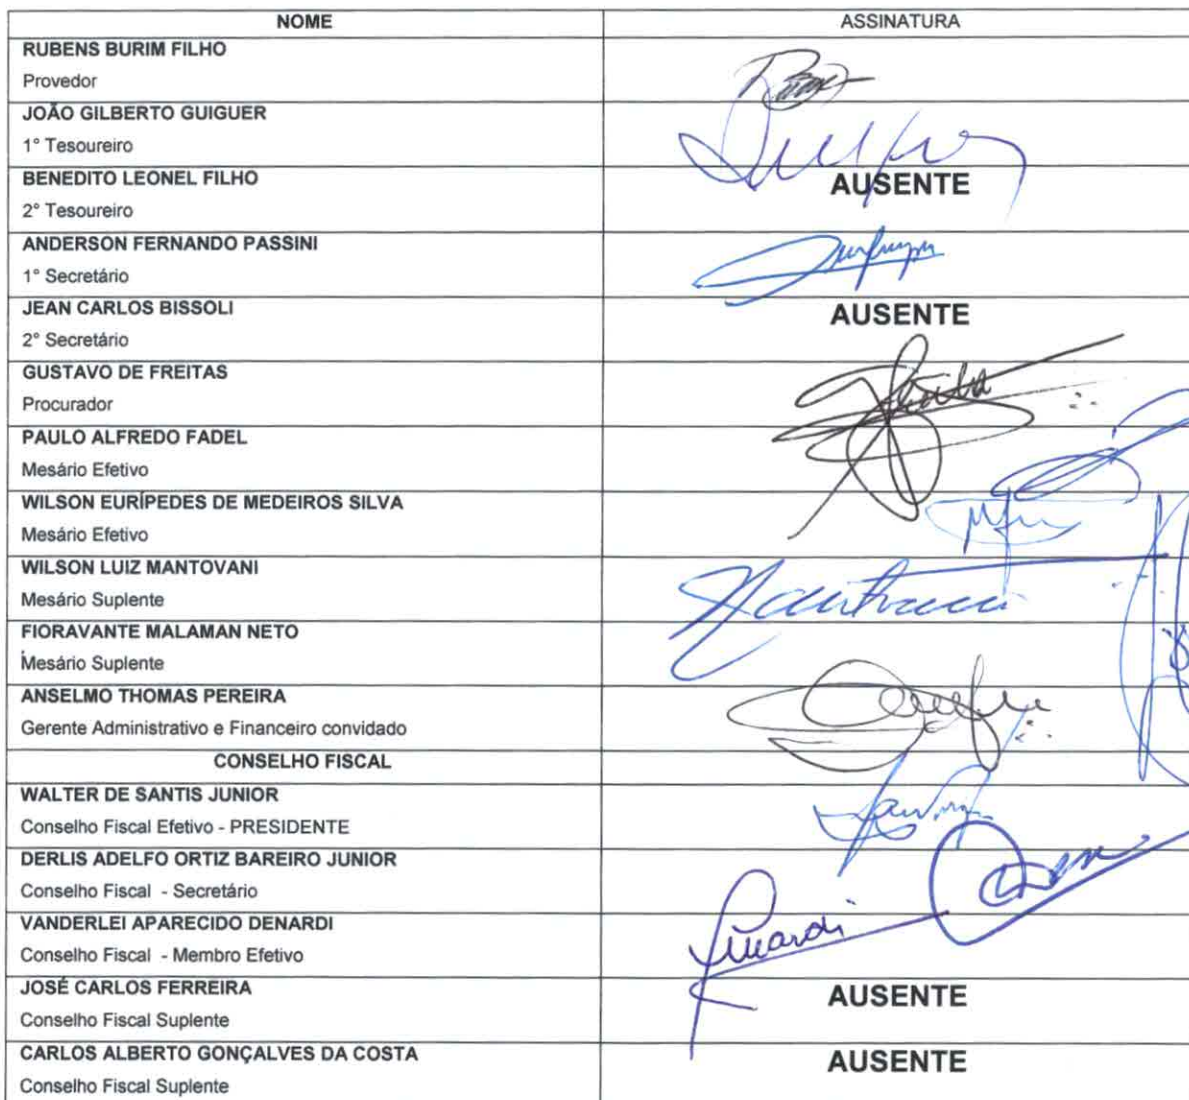 NOME ASSINATURA
RUBENS BURIM FILHO
Provedor
JOÃO GILBERTO GUIGUER
1° Tesoureiro
BENEDITO LEONEL FILHO AUSENTE
2° Tesoureiro
ANDERSON FERNANDO PASSINI
1° Secretário
JEAN CARLOS BISSOLI AUSENTE
2° Secretário
GUSTAVO DE FREITAS
Procurador
PAULO ALFREDO FADEL
Mesário Efetivo
WILSON EURÍPEDES DE MEDEIROS SILVA
Mesário Efetivo
WILSON LUIZ MANTOVANI
Mesário Suplente
FIORAVANTE MALAMAN NETO
Mesário Suplente
ANSELMO THOMAS PEREIRA
Gerente Administrativo e Financeiro convidado
CONSELHO FISCAL
WALTER DE SANTIS JUNIOR
Conselho Fiscal Efetivo - PRESIDENTE
DERLIS ADELFO ORTIZ BAREIRO JUNIOR
Conselho Fiscal - Secretário
VANDERLEI APARECIDO DENARDI
Conselho Fiscal - Membro Efetivo
JOSÉ CARLOS FERREIRA AUSENTE
Conselho Fiscal Suplente
CARLOS ALBERTO GONÇALVES DA COSTA AUSENTE
Conselho Fiscal Suplente